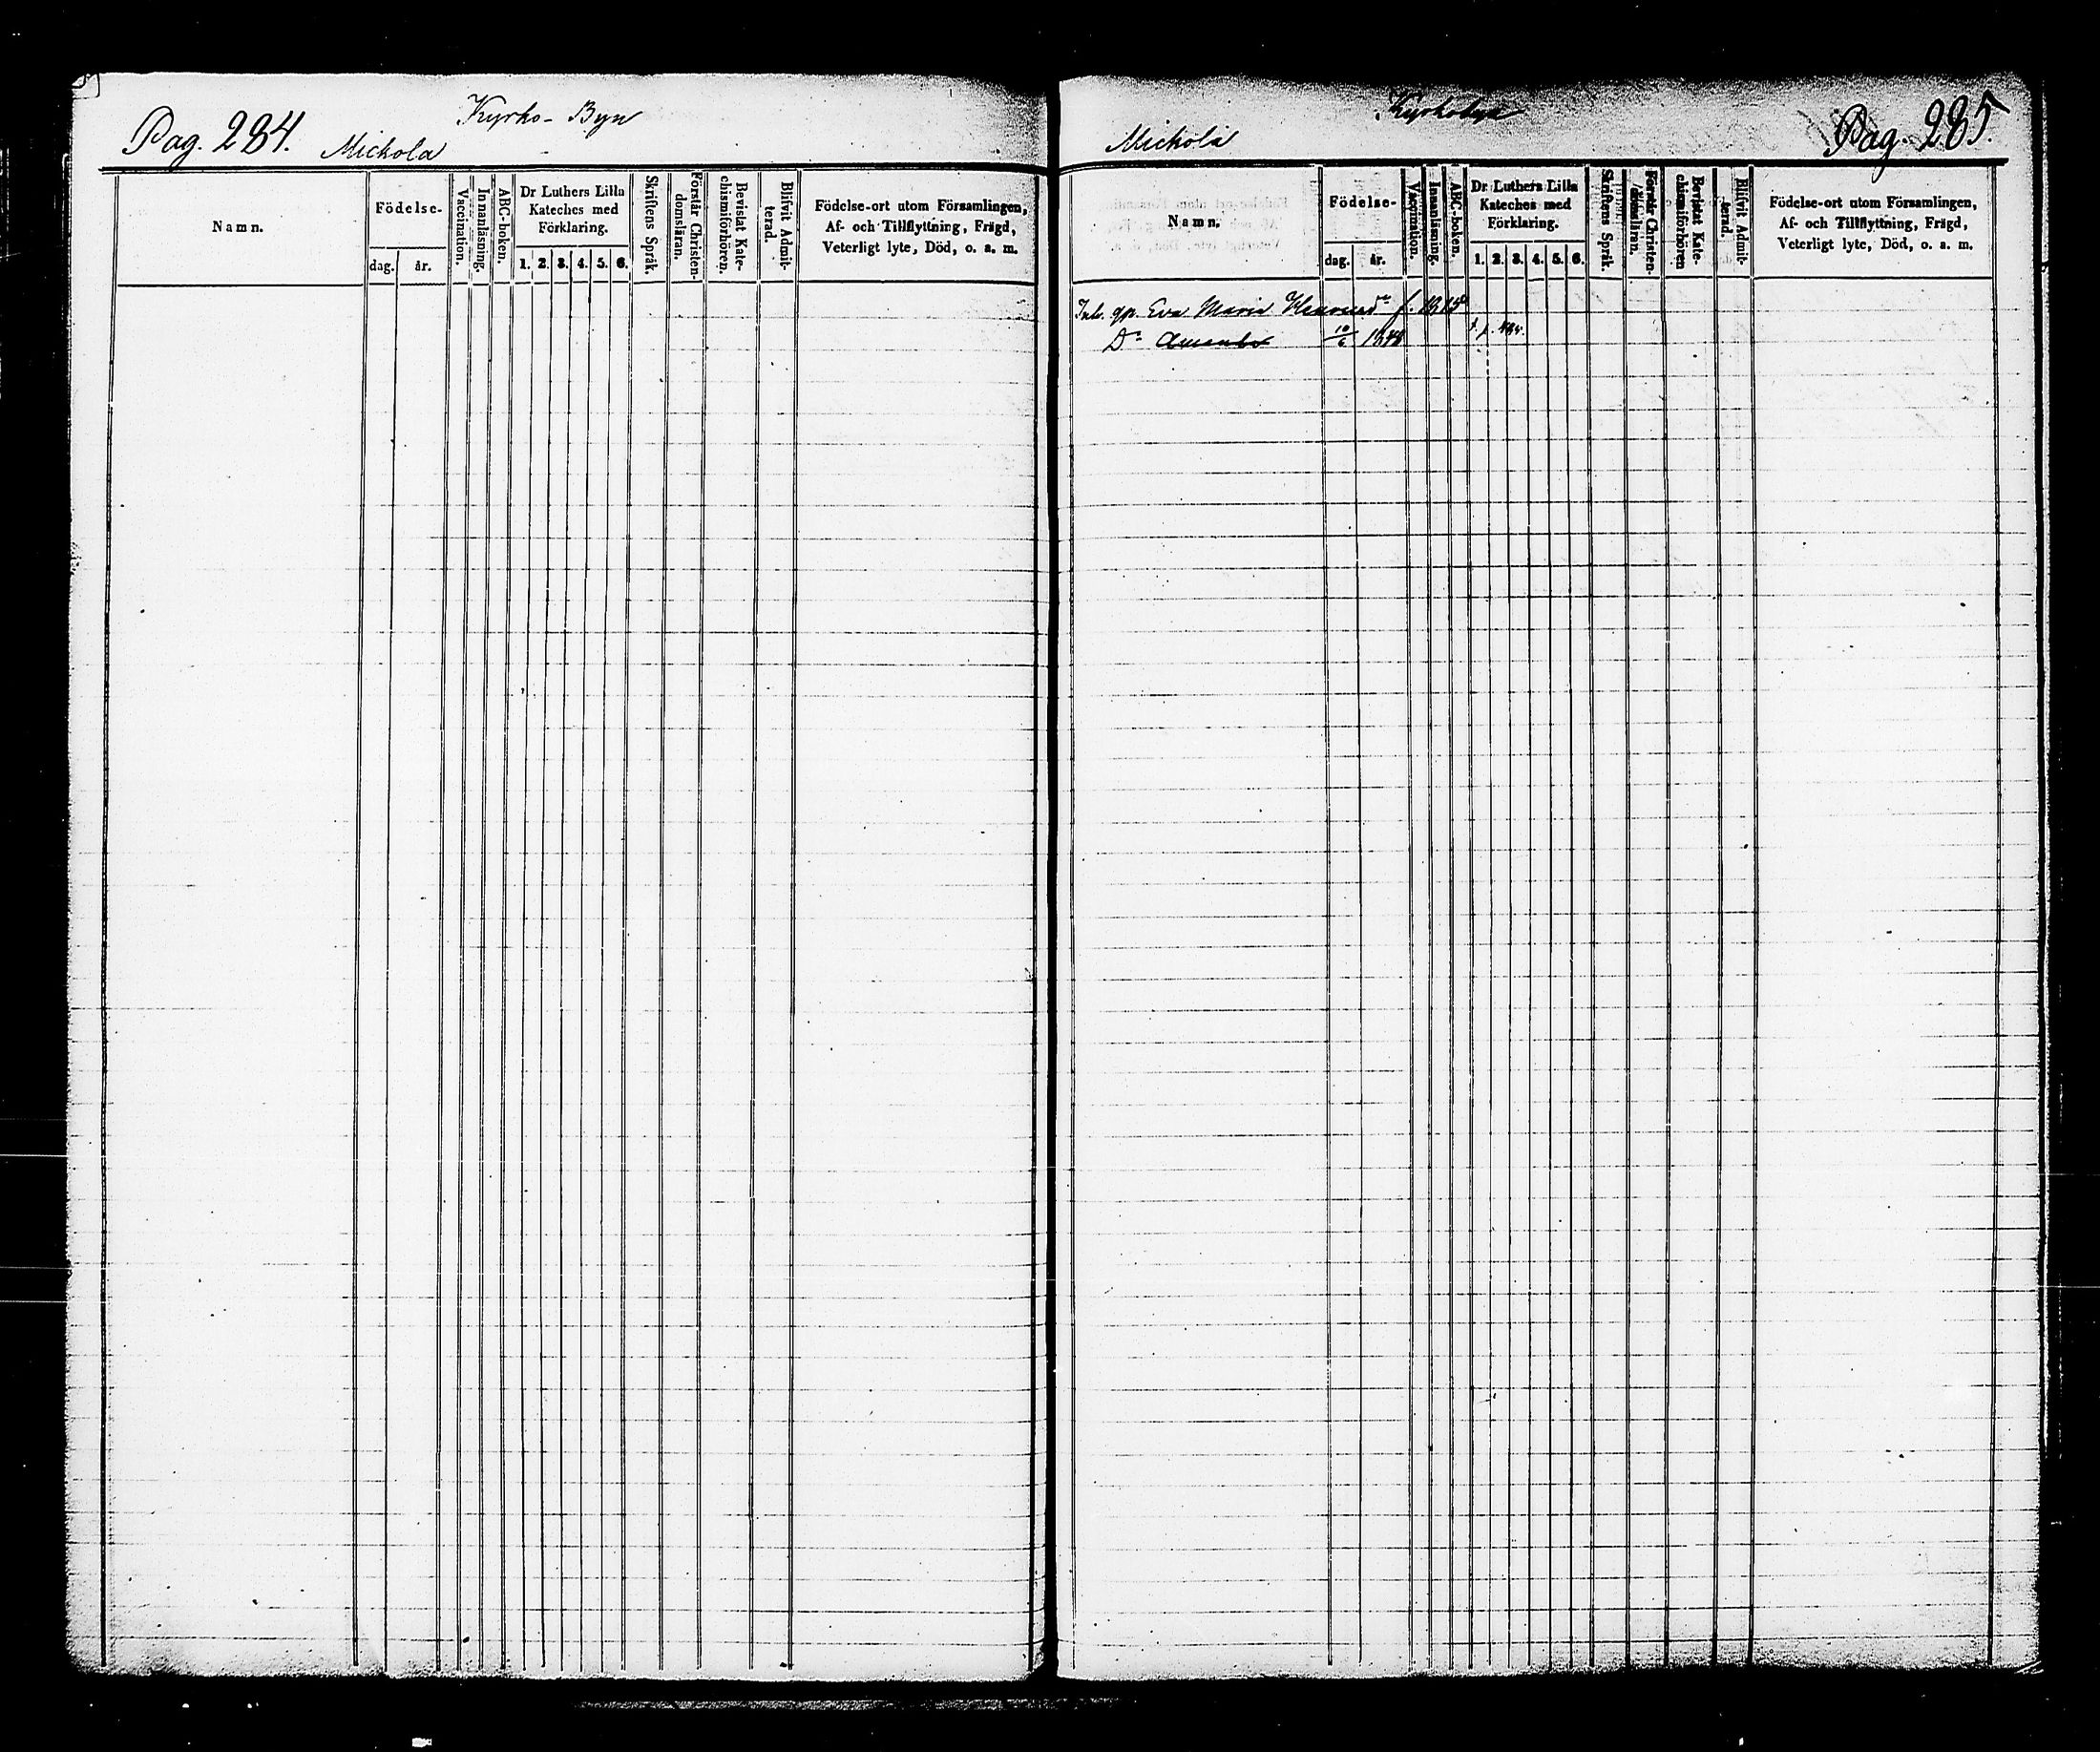 Pag. 284.
Kyrko-Byn
Mickola
Namn.
Födelse-
dag.
år.
Vaccination.
Innanläsning.
ABC-boken.
Dr Luthers Lilla
Kateches med
Förklaring.
1. 2. 3. 4. 5. 6.
Skriftens Språk.
Förstår Christen-
domsläran.
Bevistat Kate-
chismiförhören.
Blifvit Admit-
terad.
Födelse-ort utom Församlingen,
Af- och Tillflyttning, Frägd,
Veterligt lyte, Död, o. a. m.
Kyrkobyn
Mickola
Pag. 285.
Namn.
Födelse-
dag.
år.
Vaccination.
Innanläsning.
ABC-boken.
Dr Luthers Lilla
Kateches med
Förklaring.
1. 2. 3. 4. 5. 6.
Skriftens Språk.
Förstår Christen-
domsläran.
Bevistat Kate-
chismiförhören
Blifvit Admit-
terad.
Födelse-ort utom Församlingen,
Af- och Tillflyttning, Frägd,
Veterligt lyte, Död, o. a. m.
Inh. qp. Eva Maria f. 1815
Dr Amanda 10/6 1848